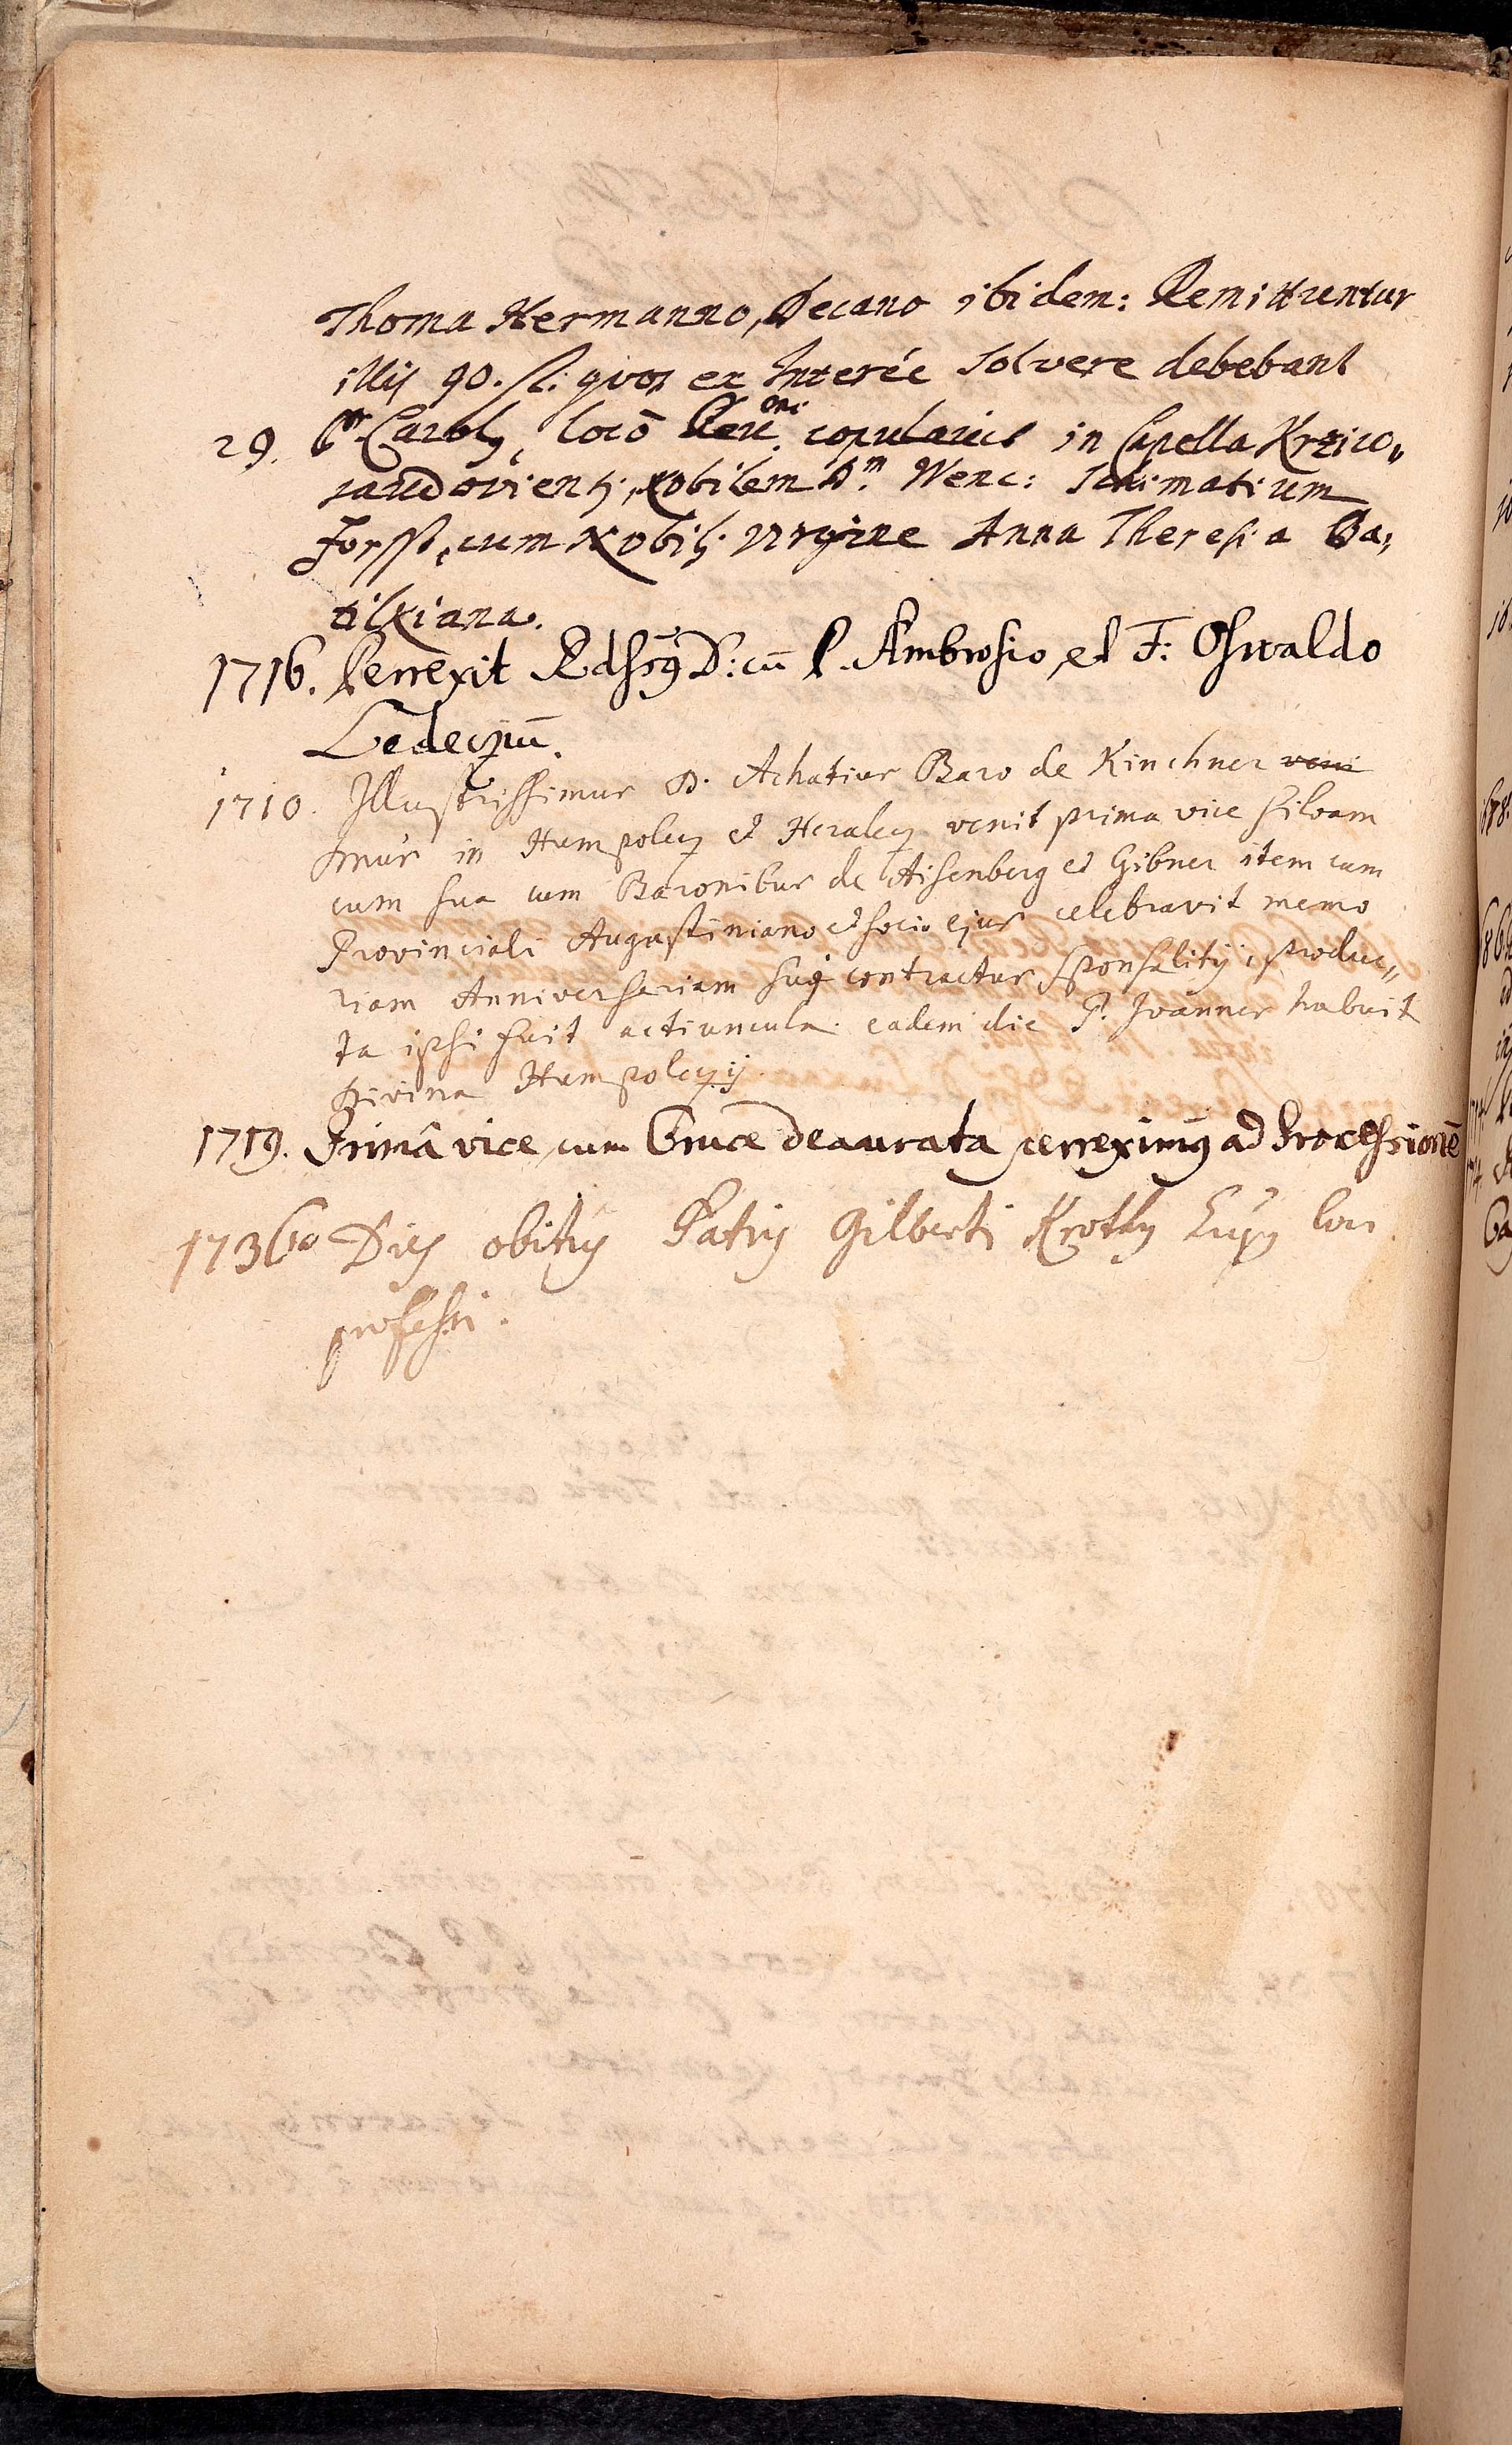 Thoma Hermanno, Decano ibidem: Remittuntur
illis 90. fl. quos ex Interée solvere debebant
29. Pr. Carolg, locõ Revmi copulavit in Capella Krzico„
saudoviensi, Nobilem Dm. Wenc: Schimatium
Forsst, cum Nobili virgine Anna Theresia Ba„
zilkiana.
1716. Perrexit Rdssg D: cū P. Ambrosio, et F: Oswaldo
Ledeczium.
1710. Illustrissimus D. Achatius Baro de Kirchner veni
mus in Humpolecz et Heralecz venit prima vice Silvam
cum sua cum Baronibus de Aisenberg et Gibner item cum
Provinciali Augustiniano et socio ejus celebravit memo
riam Anniversariam suę contractus sponsalitij, produc„
ta ipsi fuit actiuncula. eadem die P. Joannes habuit
Divina Humpoleczij.
1719. Primâ vice cum Cruce deaurata perreximg ad Processionē
1736 Dies obitus Patris Gilberti Krotky hujus loci
professi.